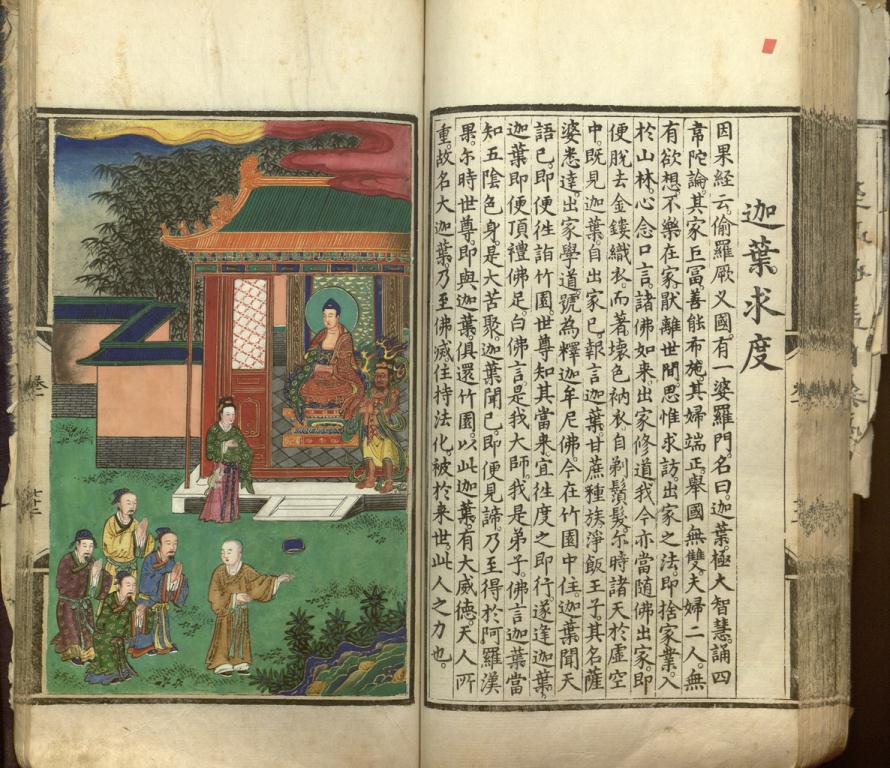 迦葉求度
因果經云。偷羅厥义國。有一婆羅門。名曰迦葉。極大智慧。誦四
韋陀論。其家巨冨。善能布施。其婦端正。舉國無雙。夫婦二人。無
有欲想。不樂在家。猒離世間。思惟求訪。出家之法。即捨家業。入
於山林。心念口言。諸佛如來。出家修道。我今亦當隨佛出家。即
便脫去金鏤織衣。而著壞色衲衣。自剃鬚髮。尒時諸天於虛空
中。既見迦葉。自出家已。報言迦葉。甘蔗種族。淨飯王子。其名薩
婆悉達。出家學道。號為釋迦牟尼佛。今在竹園中住。迦葉聞天
語已。即便徃詣竹園。世尊知其當來。宜徃度之。即行。遂逢迦葉。
迦葉即便頂禮佛足。白佛言。是我大師。我是弟子。佛言迦葉當
知五陰色身。是大苦聚。迦葉聞已。即便見諦。乃至得於阿羅漢
果。尒時世尊。即與迦葉。俱還竹園。以此迦葉。有大威德。天人所
重。故名大迦葉。乃至佛滅住持法化。被於来世。此人之力也。